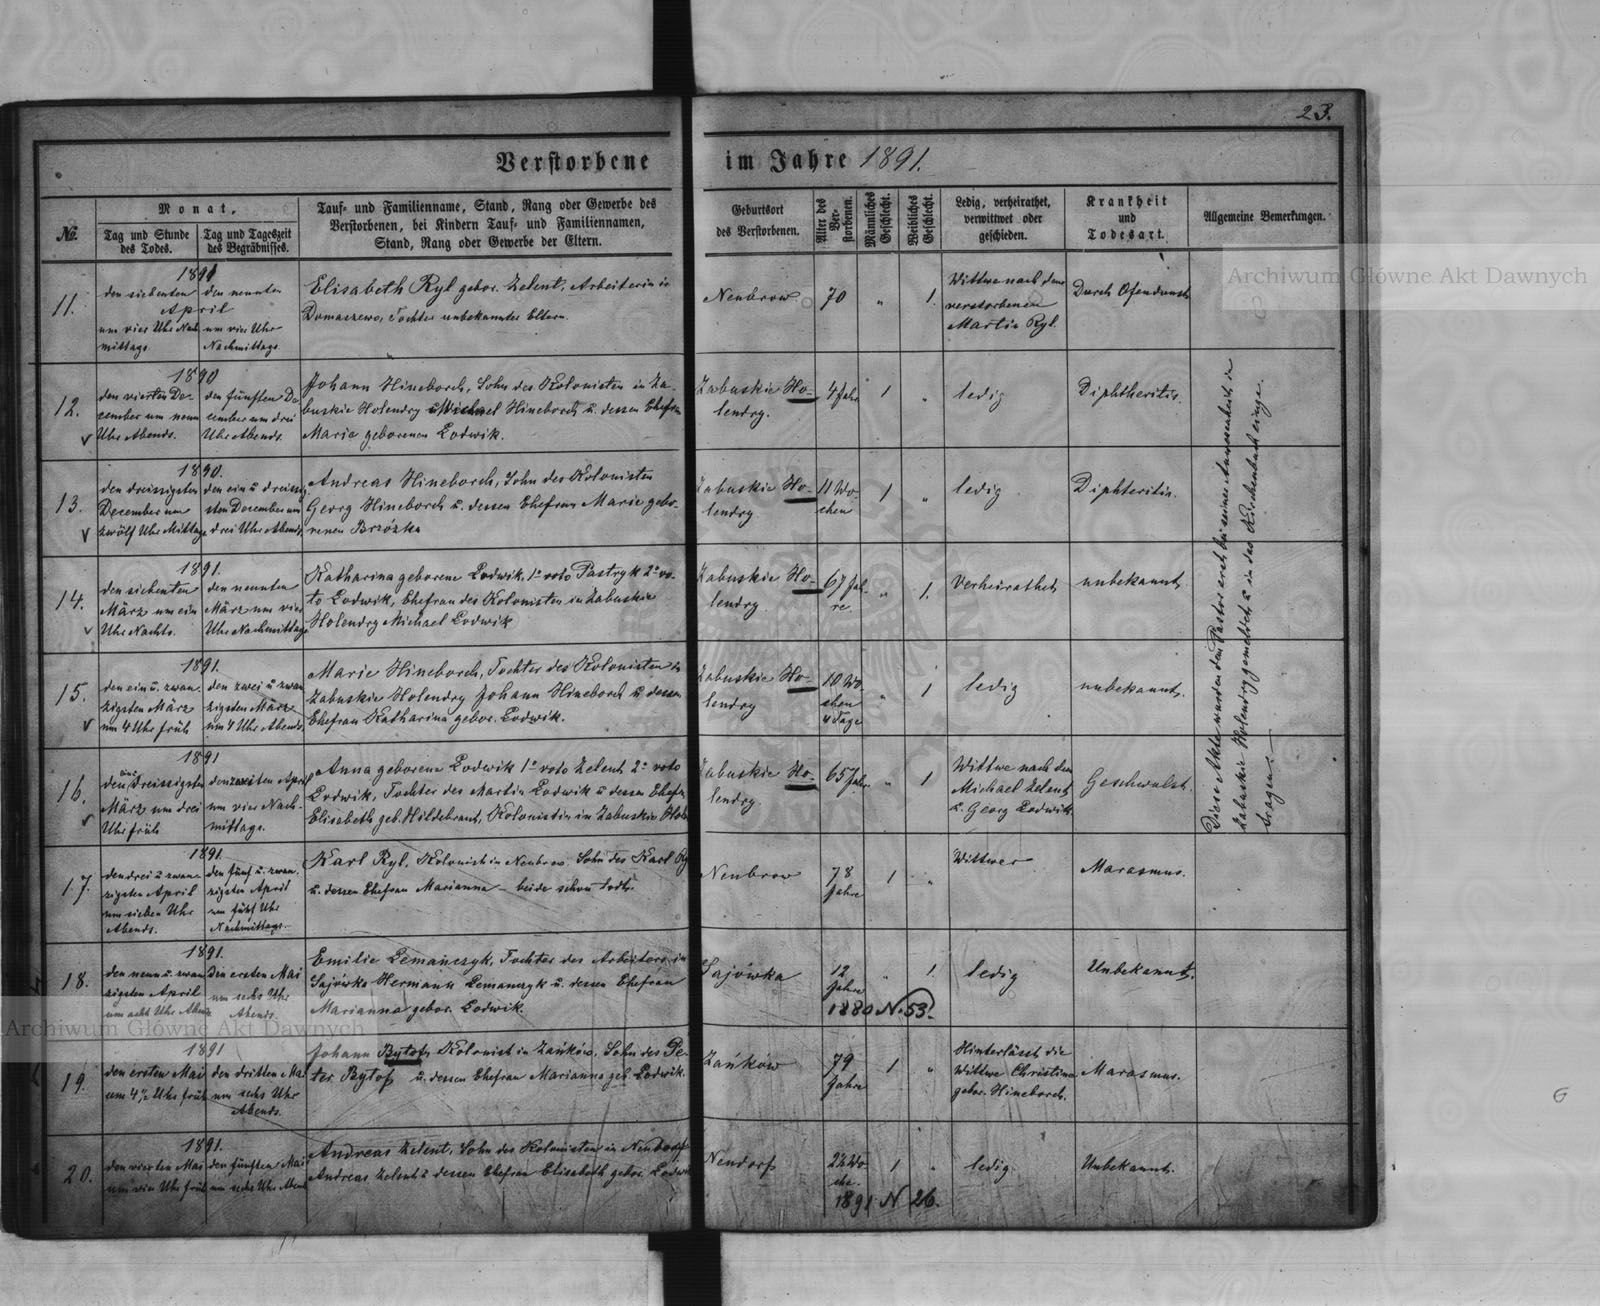 23.
Verstorbene im Jahre 1891.
№.
Monat.
Tag und Stunde
des Todes.
Tag und Tageszeit
des Begräbnisses.
Tauf- und Familienname, Stand, Rang oder Gewerbe des
Verstorbenen, bei Kindern Tauf- und Familiennamen,
Stand, Rang oder Gewerbe der Eltern.
Geburtsort
des Verstorbenen.
Alter des
Ver-
storbenen.
Männliches
Geschlecht.
Weibliches
Geschlecht.
Ledig, verheirathet,
verwittwet oder
geschieden.
Krankheit
und
Todesart.
Allgemeine Bemerkungen.
11.
1891
den siebenten
April
um vier Uhr Nach
mittags.
den neunten
um vier Uhr
Nachmittags.
Elisabeth Ryl gebor. Zelent, Arbeiterin in
Domaszewo, Tochter unbekannter Eltern.
Neubrow
70
"
1.
Wittwe nach dem
verstorbenen
Martin Ryl.
Durch Ofendunst
12.
1890
den vierten De-
cember um neun
Uhr Abends.
den fünften De
cember um drei
Uhr Abends.
Johann Hineborch, Sohn des Kolonisten in Za-
buskie Holendry Michael Hineborch u. dessen Ehefrau
Marie geborenen Lodwik.
Zabuskie Ho-
lendry.
4 Jahr
1
"
ledig
Diphtheritis.
13.
1890.
den dreissigsten
December um
zwölf Uhr Mittag
den ein u dreissig
sten December um
drei Uhr Abends
Andreas Hineborch, Sohn des Kolonisten
Georg Hineborch u. dessen Ehefrau Marie gebo-
renen Brzózka
Zabuskie Ho-
lendry
11 Wo-
chen
1
"
ledig
Diphteritis.
14.
1891.
den siebenten
März um ein
Uhr Nachts.
den neunten
März um vier
Uhr Nachmittags
Katharina geborene Lodwik, 1º voto Pastryk 2º vo-
to Lodwik, Ehefrau des Kolonisten in Zabuskie
Holendry Michael Lodwik
Zabuskie Ho-
lendry
67 Jah-
re.
"
1.
Verheirathet
unbekannt.
15.
1891.
den ein u. zwan-
zigsten März
um 4 Uhr früh
den zwei u zwan
zigsten März
um 4 Uhr Abends.
Marie Hineborch, Tochter des Kolonisten in
Zabuskie Holendry Johann Hineborch u dessen
Ehefrau Katharina gebor. Lodwik.
Zabuskie Ho-
lendry
10 Wo-
chen
4 Tage
"
1
ledig
unbekannt.
16.
1891
den dreissigsten
März um drei
Uhr früh
den zweiten April
um vier Nach-
mittags.
Anna geborene Lodwik 1º voto Zelent 2º voto
Lodwik, Tochter des Martin Lodwik u dessen Ehefr
Elisabeth geb. Hildebrant, Kolonistin in Zabuskie Hol
Zabuskie Ho-
lendry.
65 Jahr
"
1
Wittwe nach dem
Michael Zelent
u. Georg Lodwik
Geschwulst.
Diese Akte wurden dem Pastor erst bei seiner Anwesenheit in
Zabuskie Holendry gemeldet u in das Kirchenbuch einge-
tragen.
17.
1891.
den drei u zwan-
zigsten April
um sieben Uhr
Abends.
den fünf u. zwan-
zigsten April
um fünf Uhr
Nachmittags.
Karl Ryl, Kolonist in Neubrow, Sohn des Karl Ry
u. dessen Ehefrau Marianna - beide schon todt.
Neubrow
78
Jahre
1
"
Wittwer
Marasmus.
18.
1891.
den neun u. zwan
zigsten April
um acht Uhr Abends
den ersten Mai
um sechs Uhr
Abends.
Emilie Lemanczyk, Tochter des Arbeiters in
Sajówka Hermann Lemanczyk u. dessen Ehefrau
Marianna gebor. Lodwik.
Sajówka
12
Jahre
"
1.
1880 N. 53.
ledig
Unbekannt.
19.
1891
den ersten Mai
um 4½ Uhr früh
den dritten Mai
um sechs Uhr
Abends.
Johann Bytof, Kolonist in Zańków, Sohn des Pe-
ter Bytof u. dessen Ehefrau Marianna geb. Lodwik.
Zańków
79
Jahre
1
"
Hinterlässt die
Wittwe Christina
gebor. Hineborch.
Marasmus.
20.
1891.
den vierten Mai
um vier Uhr früh
den fünften Mai
um sechs Uhr Abends
Andreas Zelent, Sohn des Kolonisten in Neudorf
Andreas Zelent u dessen Ehefrau Elisabeth gebor. Lodwi
Neudorf
1
"
1891 N 26.
ledig.
Unbekannt.
Archiwum Główne Akt Dawnych
Archiwum Główne Akt Dawnych